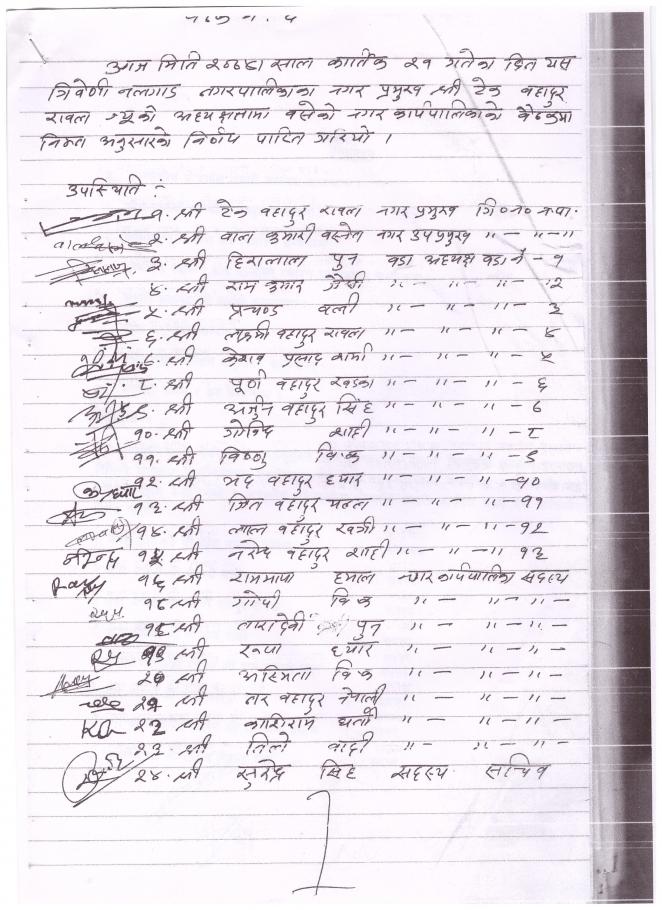 आज मिति २०७४ साल कार्तिक २१ गतेका दिन यस
त्रिवेणी नलगाड नगरपालिकाका नगर प्रमुख श्री टेक बहादुर
रावल ज्यूको अध्यक्षतामा बसेको नगर कार्यपालिकाको बैठकमा
निम्न अनुसारको निर्णय पारित गरियो ।
उपस्थिति :-
१. श्री टेक बहादुर रावल नगर प्रमुख त्रि०न०न.पा.
२. श्री बाल कुमारी बस्नेत नगर उपप्रमुख "-"-"
३. श्री हिरालाल पुन वडा अध्यक्ष वडा नं - १
४. श्री राम कुमार जैसी "-"-"-२
५. श्री प्रचण्ड वली "-"-"-३
६. श्री लक्ष्मी बहादुर रावल "-"-"-४
७. श्री केशव प्रसाद शर्मा "-"-"-५
८. श्री पूर्ण बहादुर खड्का "-"-"-६
९. श्री अर्जुन बहादुर सिंह "-"-"-७
१०. श्री गोविन्द शाही "-"-"-८
११. श्री विष्णु वि.क "-"-"-९
१२. श्री भद्र बहादुर घर्ती "-"-"-१०
१३. श्री जित बहादुर "-"-"-११
१४. श्री लाल बहादुर खत्री "-"-"-१२
नरेन्द्र १५ श्री नरेन्द्र बहादुर शाही "-"-" १३
१६ श्री राममाया हमाल नगर कार्यपालिका सदस्य
१७ श्री गोपी वि.क "-"-"-
१८ श्री तारादेवी पुन "-"-"-
१९ श्री रूपा घर्ती "-"-"-
२० श्री अस्मिता वि.क "-"-"-
२१ श्री तर बहादुर नेपाली "-"-"-
२२ श्री काशिराम घर्ती "-"-"-
२३. श्री तिलो वादी "-"-"-
२४. श्री सुरेन्द्र सिंह सदस्य सचिव